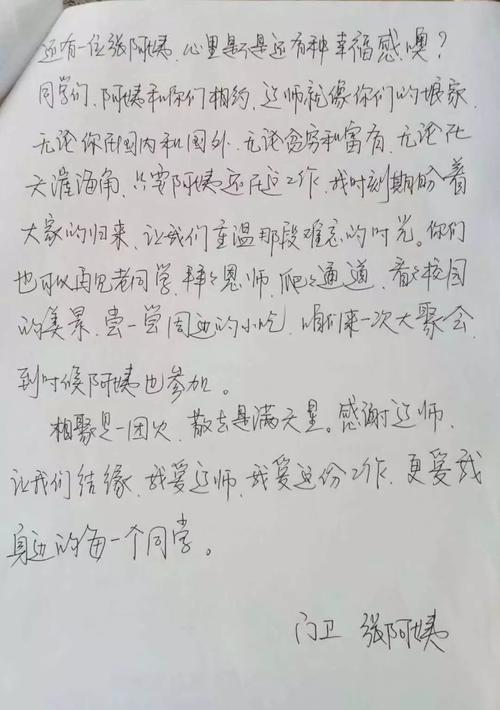 还有一位张阿姨,心里是不是还有种幸福感噢?
同学们,阿姨和你们相约,辽师就像你们的娘家,
无论你在国内和国外,无论贫穷和富有,无论在
天涯海角,只要阿姨还在这工作,我时刻期盼着
大家的归来,让我们重温那段难忘的时光。你们
也可以再见老同学,拜拜恩师,爬爬通道,看看校园
的美景,尝一尝周边的小吃,咱们来一次大聚会,
到时候阿姨也参加。
相聚是一团火,散去是满天星。感谢辽师,
让我们结缘,我爱辽师,我爱这份工作,更爱我
身边的每一个同学。
门卫 张阿姨